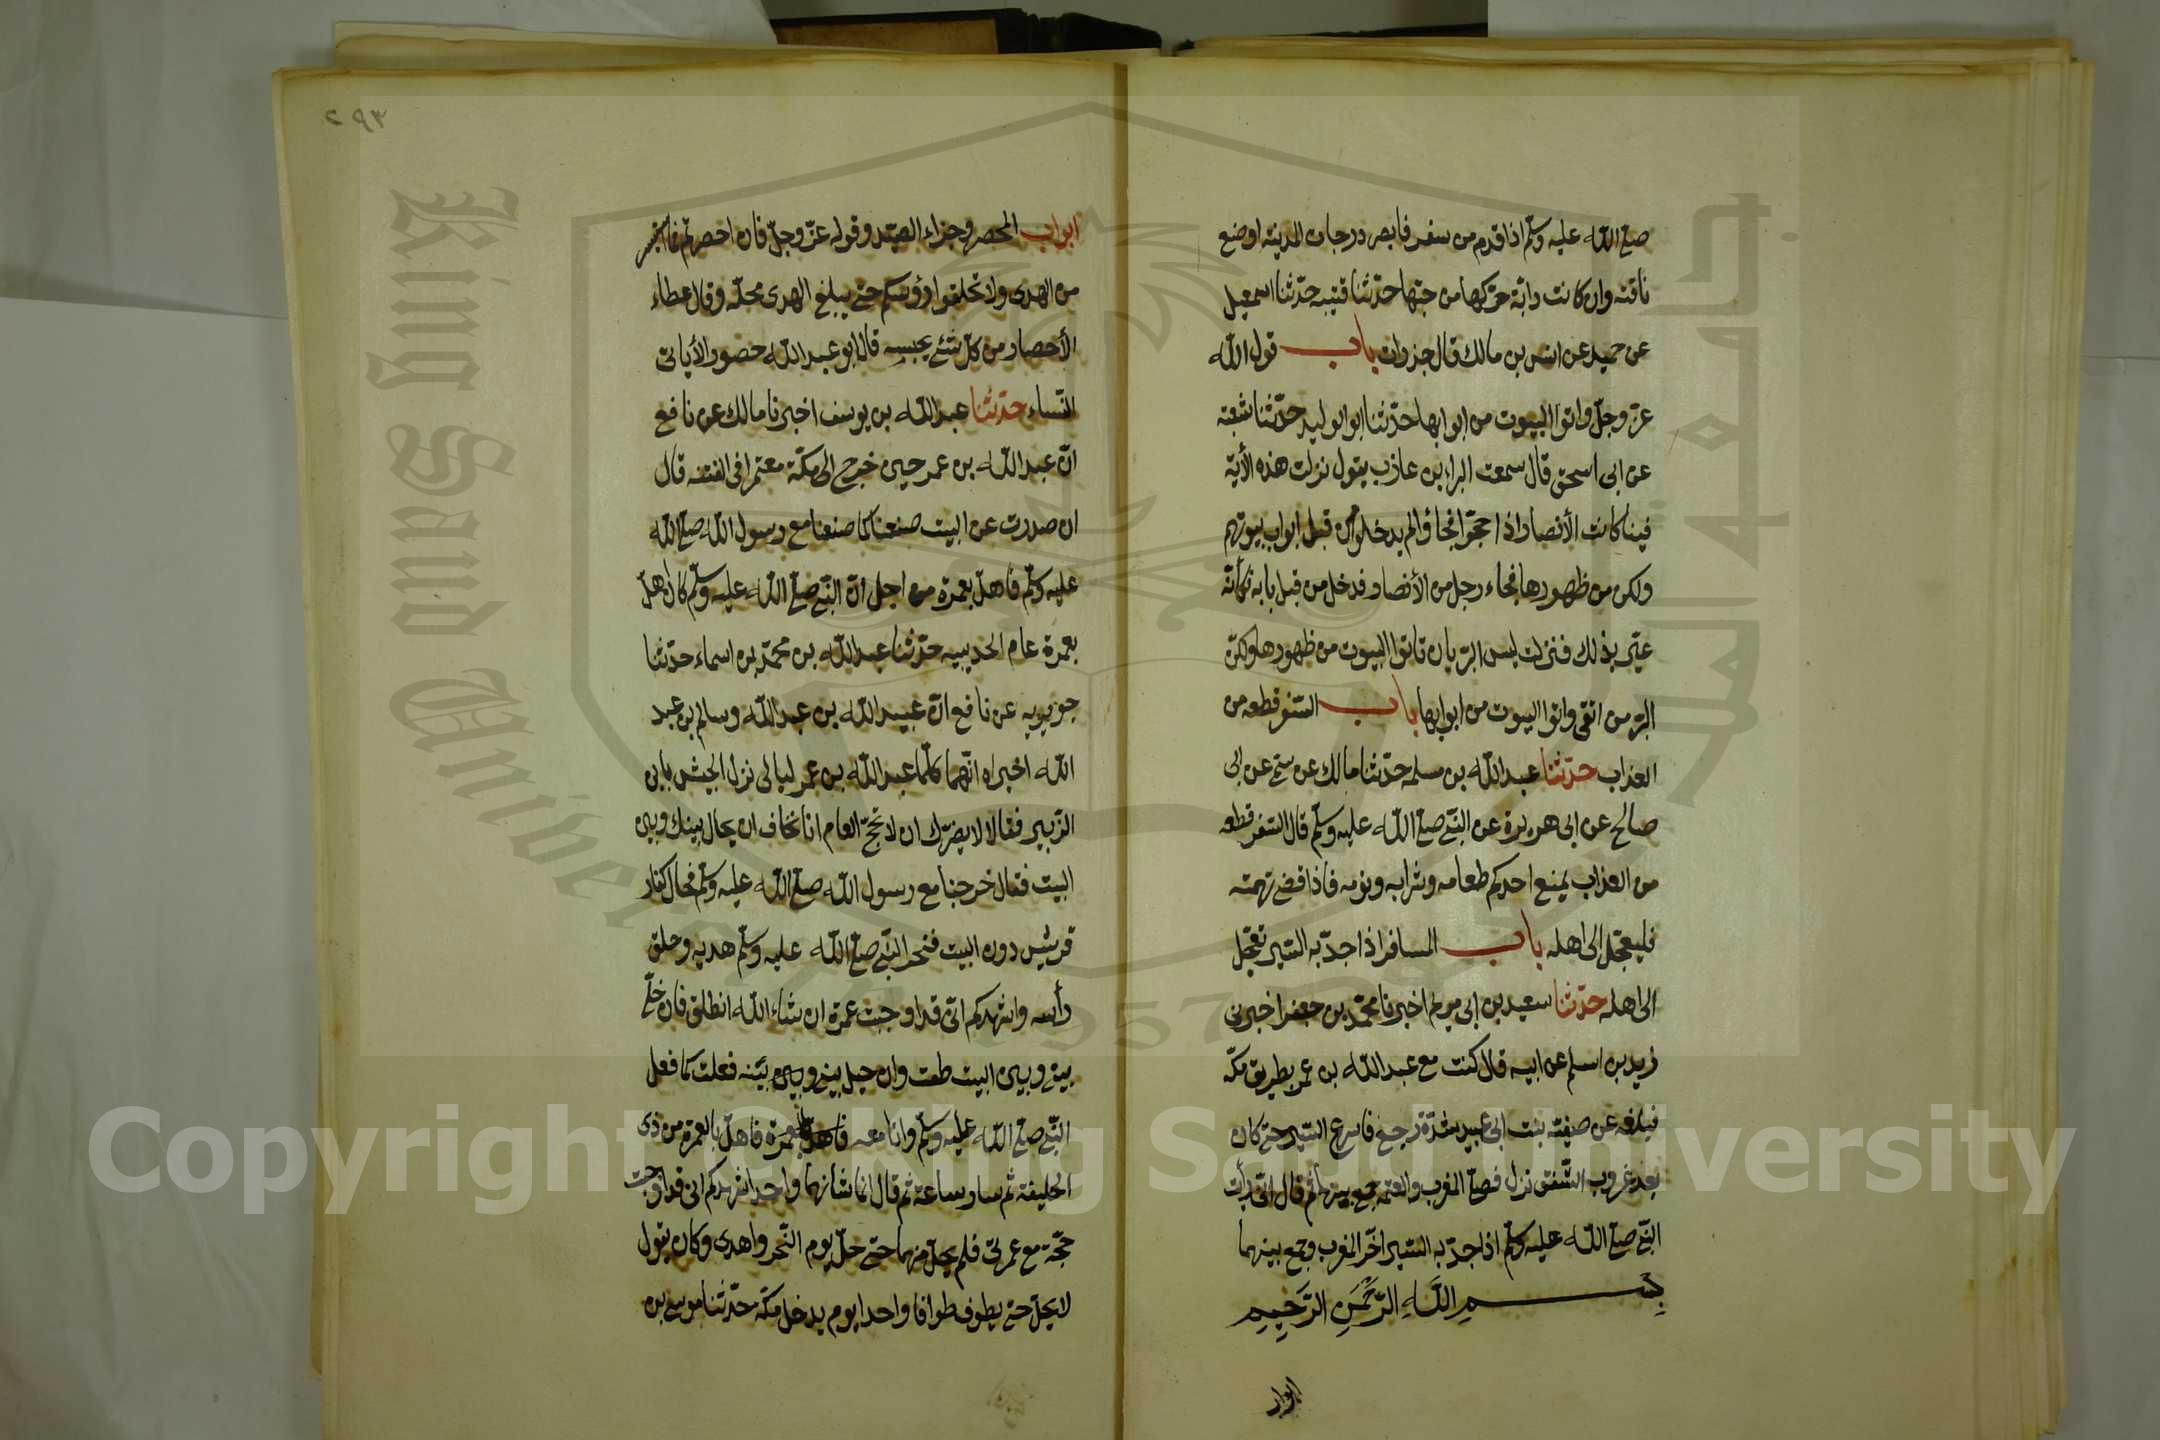 صلى الله عليه وسلم اذا قدم من سفر فابصر درجات المدينة اوضع
ناقته وان كانت دابة حركها من حبها حدثنا قتيبه حدثنا اسمعيل
عن حميد عن انس بن مالك قال جذرات باب قول الله
عز وجل واتوا البيوت من ابوابها حدثنا ابو الوليد حدثنا شعبه
عن ابى اسحق قال سمعت البراء بن عازب يقول نزلت هذه الأية
فينا كانت الأنصار اذا حجوا فجاؤا لم يدخلوا من قبل ابواب بيوتهم
ولكن من ظهورها فجاء رجل من الأنصار فدخل من قبل بابه فكأنه
عير بذلك فنزلت ليس البر بان تاتوا البيوت من ظهورها ولكن
البر من اتقى واتوا البيوت من ابوابها باب السفر قطعه من
العذاب حدثنا عبد الله بن مسلمه حدثنا مالك عن سمى عن ابى
صالح عن ابى هريرة عن النبى صلى الله عليه وسلم قال السفر قطعه
من العذاب يمنع احدكم طعامه وشرابه ونومه فاذا قضى نهمته
فليعجل الى اهله باب المسافر اذا جد به السير تعجل
الى اهله حدثنا سعيد بن ابى مريم اخبرنا محمد بن جعفر اخبرنى
زيد بن اسلم عن ابيه قال كنت مع عبد الله بن عمر بطريق مكة
فبلغه عن صفيه بنت ابى عبيد شدة وجع فاسرع السير حتى كان
بعد غروب الشفق نزل فصلى المغرب والعتمه جمع بينهما ثم قال انى رأيت
النبى صلى الله عليه وسلم اذا جد به السير اخر المغرب وجمع بينهما
بسم الله الرحمن الرحيم
ابواب
٢٩٣
ابواب المحصر وجزاء الصيد وقوله عز وجل فان احصرتم فما استيسر
من الهدى ولا تحلقوا رؤسكم حتى يبلغ الهدى محله وقال عطاء
الأحصار من كل شئ يحبسه قال ابو عبد الله حصورا لا ياتى
النساء حدثنا عبد الله بن يوسف اخبرنا مالك عن نافع
ان عبد الله بن عمر حين خرج الى مكة معتمرا فى الفتنه قال
ان صددت عن البيت صنعنا كما صنعنا مع رسول الله صلى الله
عليه وسلم فاهل بعمرة من اجل ان النبى صلى الله عليه وسلم كان اهل
بعمرة عام الحديبيه حدثنا عبد الله بن محمد بن اسماء حدثنا
جويريه عن نافع ان عبيد الله بن عبد الله وسالم بن عبد
الله اخبراه انهما كلما عبد الله بن عمر ليالى نزل الجيش بابن
الزبير فقالا لا يضرك ان لا تحج العام انا نخاف ان يحال بينك وبين
البيت فقال خرجنا مع رسول الله صلى الله عليه وسلم فحال كفار
قريش دون البيت فنحر النبى صلى الله عليه وسلم هديه وحلق
رأسه واشهدكم انى قد اوجبت عمرة ان شاء الله انطلق فان خلى
بينى وبين البيت طفت وان حيل بينى وبين بينه فعلت كما فعل
النبى صلى الله عليه وسلم وانا معه فاهل بالعمرة من ذى
الحليفة ثم سار ساعة ثم قال انما شانهما واحد اشهدكم انى قد اوجبت
حجة مع عمرتى فلم يحل منهما حتى حل يوم النحر واهدى وكان يقول
لا يحل حتى يطوف طوافا واحدا يوم يدخل مكة حدثنا موسى بن
King Saud University
1957
جامعة الملك سعود
Copyright © King Saud University